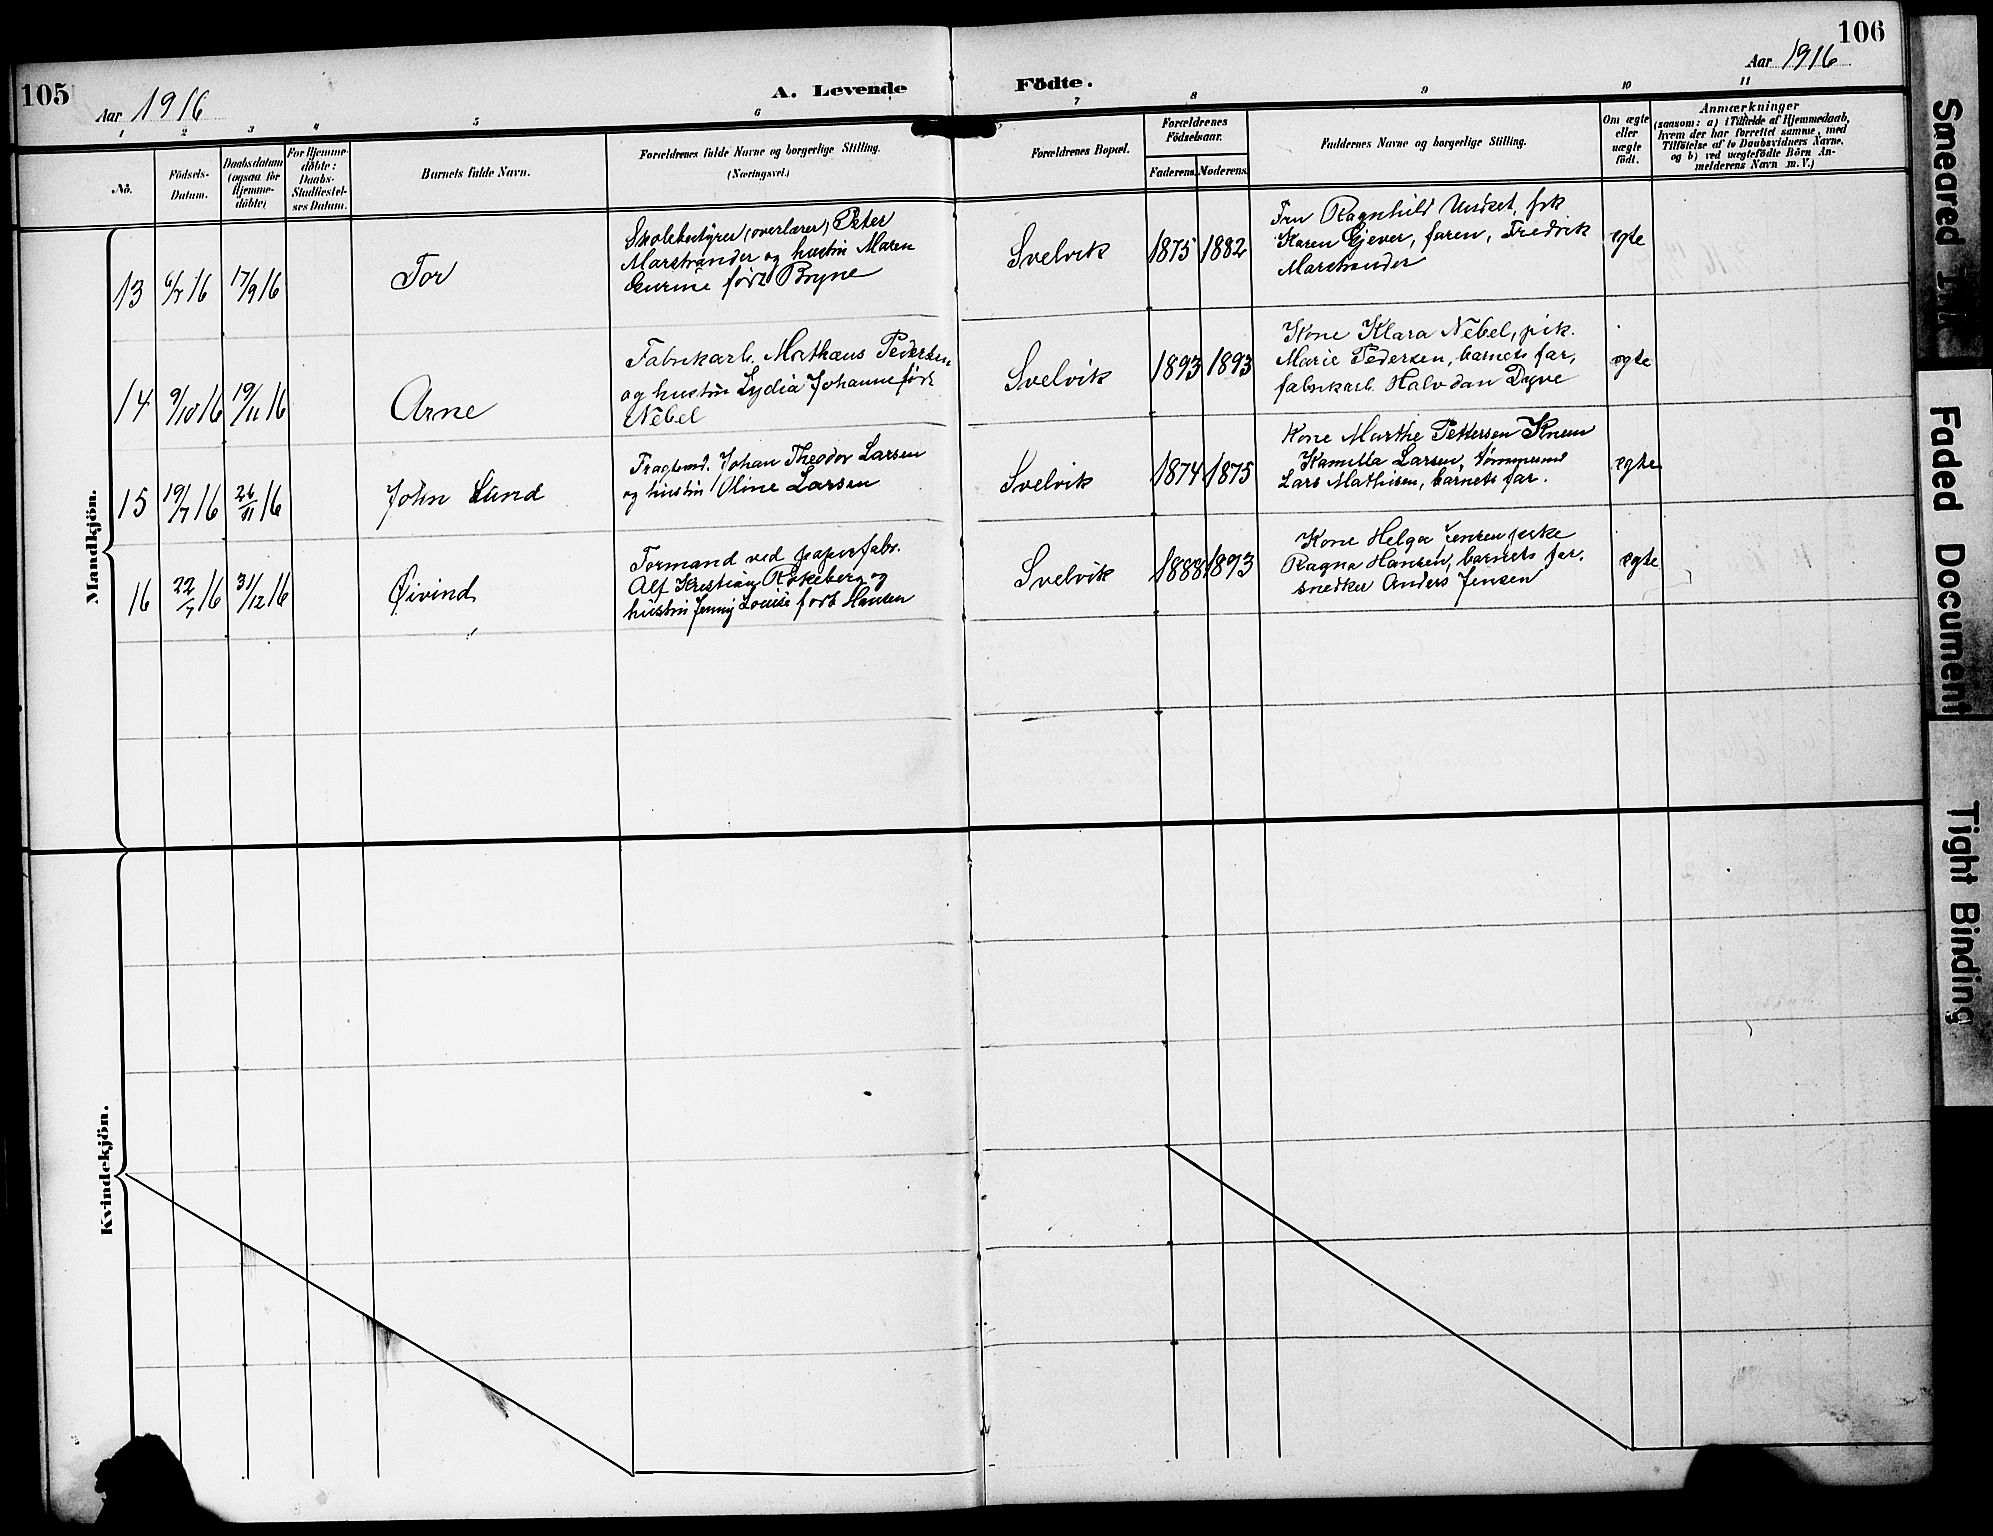 105
Aar 1916
A. Levende
Födte.
Aar 1916
106
1 2 3 4 5 6 7 8 9 10 11
No.
Födsels-
Datum.
Daabsdatum
(ogsaa for
Hjemme-
döbte)
For Hjemme-
döbte:
Daabs-
Stadfæstel-
ses Datum.
Barnets fulde Navn.
Forældrenes fulde Navne og borgerlige Stilling.
(Næringsvei.)
Forældrenes Bopæl.
Forældrenes
Födselsaar.
Faderens. Moderens.
Faddernes Navne og borgerlige Stilling.
Om ægte
eller
uægte
födt.
Anmærkninger
(saasom: a) i Tilfælde af Hjemmedaab,
hvem der har forrettet samme, med
Tilföielse af to Daabsvidners Navne,
og b) ved uægtefödte Börn An-
melderens Navn m. V.)
Mandkjön.
13 6/7 16 17/9 16 Tor
Skolebestyrer (overlærer) Peter
Marstrander og hustru Maren
Gurine født Bryne
Svelvik 1875 1882
Fru Ragnhild Undset, frk
Karen Gjever, faren, Fredrik
Marstrander
egte
14 9/10 16 19/11 16 Arne
Fabrikarb. Mathæus Pedersen
og hustru Lydia Johanne født
Nebel
Svelvik 1893 1893
Kone Klara Nebel, pik.
Marie Pedersen, barnets far,
fabrikarb. Halvdan Dyve
egte
15 19/7 16 26/11 16 John Lund
Johan Theodor Larsen
og hustru Oline Larsen
Svelvik 1874 1875
Kone Marthe Pettersen Kone
Kamilla Larsen,
Lars Mathisen, barnets far.
egte
16 22/7 16 31/12 16 Øivind
Formand ved papirfabr.
Alf Kristian Røkeberg og
hustru Jenny Louise født Hansen
Svelvik 1888 1893
Kone Helga Jensen
Ragna Hansen, barnets far,
snedker Anders Jensen
egte
Kvindekjön.
Smeared Ink
Faded Document
Tight Binding